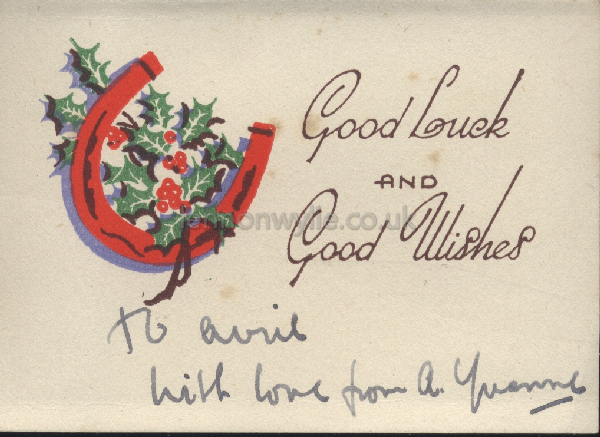 Good Luck
AND
Good Wishes
lennonwylie.co.uk
To avril
With love from A. Yvonne